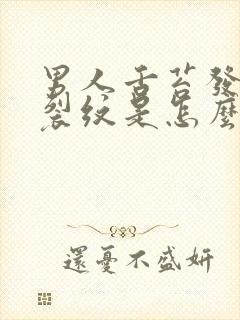 男人舌苔發
裂紋是怎麼
還憂不盛妍